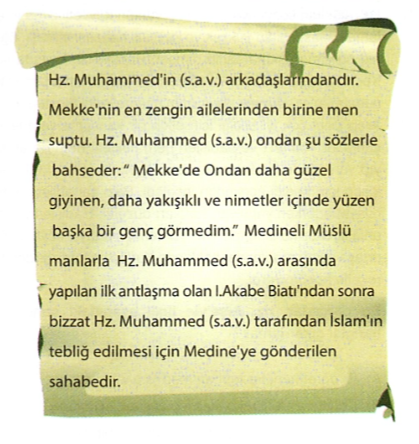 Hz. Muhammed'in (s.a.v.) arkadaşlarındandır.
Mekke'nin en zengin ailelerinden birine men
suptu. Hz. Muhammed (s.a.v.) ondan şu sözlerle
bahseder: “ Mekke'de Ondan daha güzel
giyinen, daha yakışıklı ve nimetler içinde yüzen
başka bir genç görmedim.” Medineli Müslü
manlarla Hz. Muhammed (s.a.v.) arasında
yapılan ilk antlaşma olan I.Akabe Biatı'ndan sonra
bizzat Hz. Muhammed (s.a.v.) tarafından İslam'ın
tebliğ edilmesi için Medine'ye gönderilen
sahabedir.